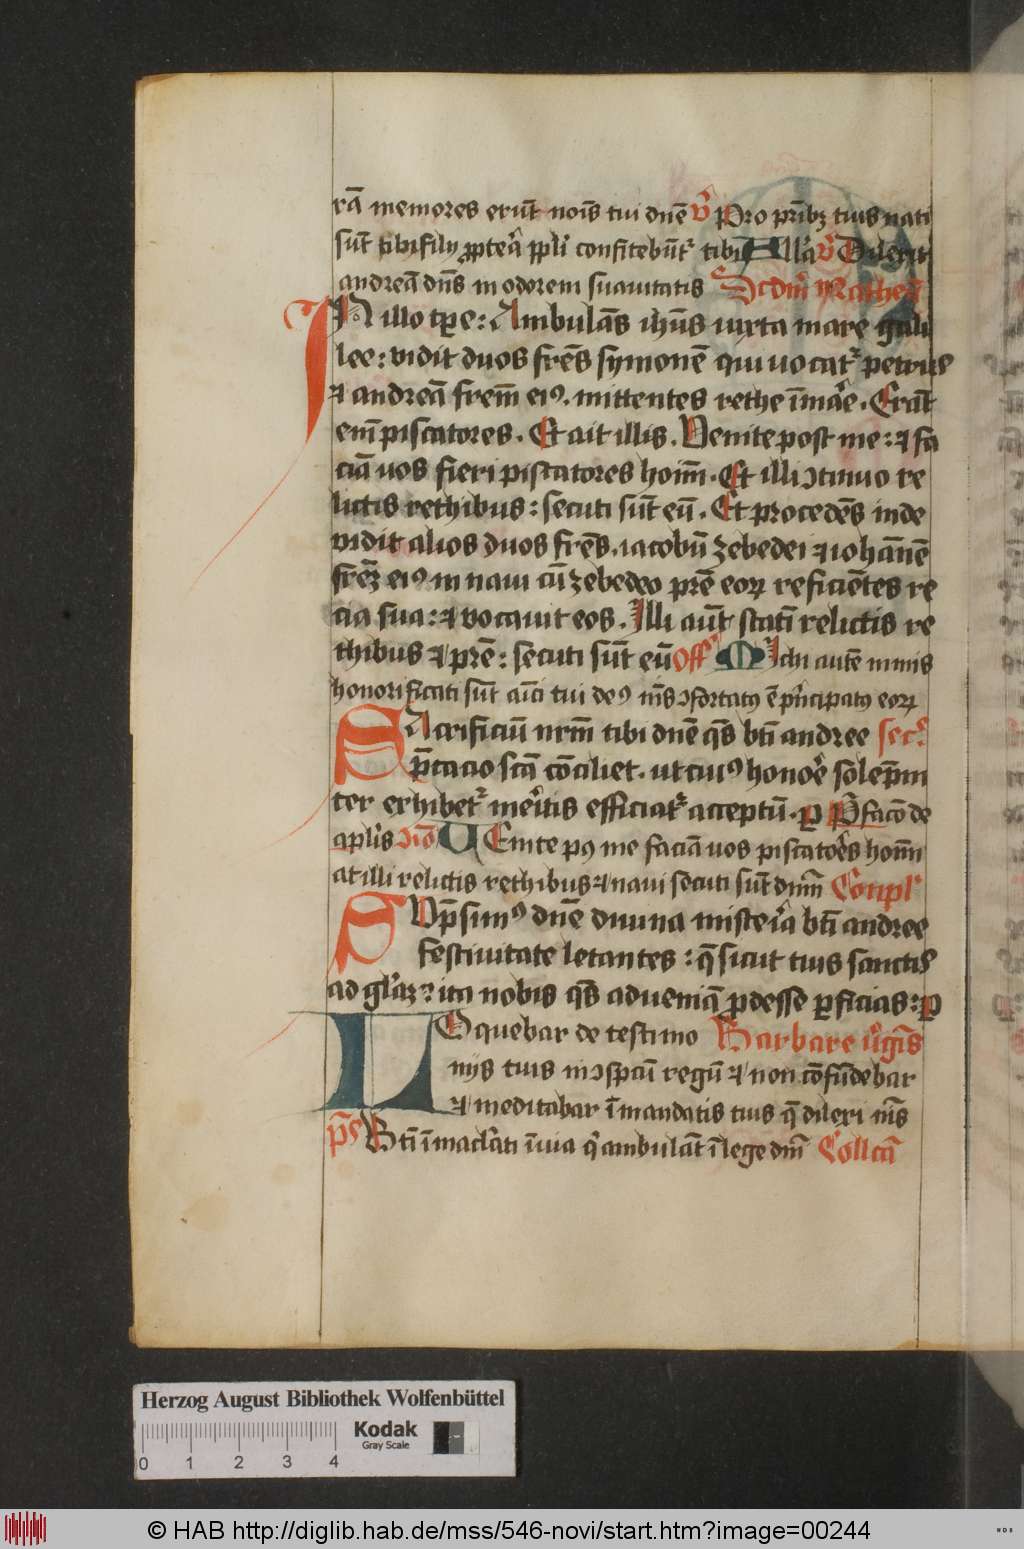 rā memores erūt noīs tui dnē v̄ Pro prībꝫ tuis nati
sūt tibi filij ꝓpteā ppli confitebūtˀ tibi Allā v̄ Dilexit
andreā dn̄s in odorem suauitatis Scdm̄ Matheū
IN illo tꝑe: Ambulās ihūs iuxta mare gali
lee: vidit duos frēs symonē qui uocatˀ petrus
⁊ andreā frem̄ eiꝰ. mittentes rethe ī māe. Erāt
em̄ piscatores. Et ait illis. Venite post me: ⁊ fa
ciā uos fieri piscatores hoīm̄. Et illi ↄtinuo re
lictis rethibus: secuti sūt eū. Et procedēs inde
vidit alios duos frēs. iacobū zebedei ⁊ iohānē
frēꝫ eiꝰ in naui cū zebedeo prē eoꝝ reficiētes re
cia sua: ⁊ vocauit eos. Illi aūt statī relictis re
thibus ⁊ prē: secuti sūt eū Off̄ Michi autē nimis
honorificati sūt aīci tui deꝰ n̄īs ↄfortatꝰ ē prīncipatꝰ eoꝝ
SAcrificiū nr̄m̄ tibi dnē qs̄ bt̄i andree secˀ
p̄catio scā cōciliet. ut cuiꝰ honoē solēpni
ter exhibetˀ meītis efficiatˀ acceptū. ꝑ P̄facō de
aplīs ↄīō VEnite pꝰ me faciā uos piscatoēs hoīm̄
at illi relictis rethibus ⁊ naui secuti sūt dnm̄ Conplˀ
SVp̄simꝰ dnē diuina misteīa bt̄i andree
festiuitate letantes: q̄ sicut tuis sanctis
ad glāꝫ: ita nobis qs̄ ad ueniā ꝓdesse ꝑficias: ꝑ
LOquebar de testimo Barbare uˀgīs
nijs tuis in ↄspcū regū ⁊ non cōfūdebar
⁊ meditabar ī mandatis tuis q̄ dilexi nīs
p̄s Bt̄i īmaclāti ī uia qˀ ambulāt ī lege dnī Collcā
Herzog August Bibliothek Wolfenbüttel
Kodak
Gray Scale
0 1 2 3 4
© HAB http://diglib.hab.de/mss/546-novi/start.htm?image=00244